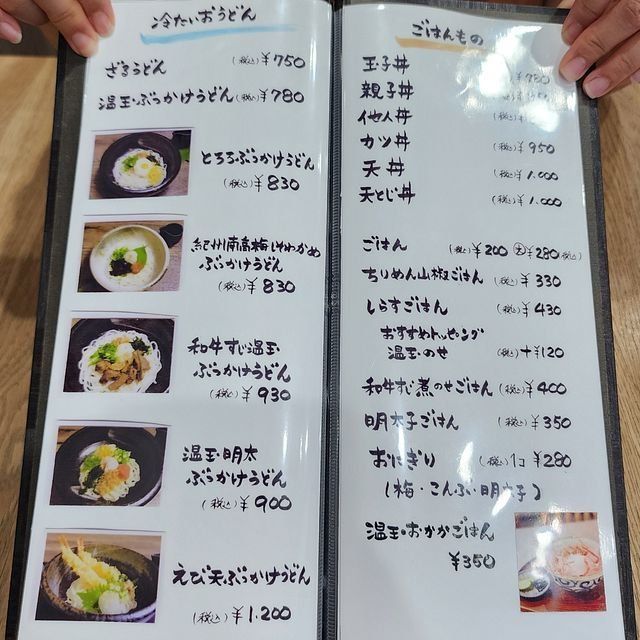 冷たいおうどん
ざるうどん (税込)¥750
温玉・ぶっかけうどん(税込)¥780
とろろぶっかけうどん
(税込)¥830
紀州南高梅しそわかめ
ぶっかけうどん
(税込)¥830
和牛すじ温玉
ぶっかけうどん
(税込)¥930
温玉・明太
ぶっかけうどん
(税込)¥900
えび天ぶっかけうどん
(税込)¥1.200
ごはんもの
玉子丼
親子丼
他人丼
カツ丼 (税込)¥950
天丼 (税込)¥1.000
天とじ丼 (税込)¥1.000
ごはん (税込)¥200 大¥280(税込)
ちりめん山椒ごはん (税込)¥330
しらすごはん (税込)¥430
おすすめトッピング
温玉のせ (税込)+¥120
和牛すじ煮のせごはん(税込)¥400
明太子ごはん (税込)¥350
おにぎり (税込)1コ ¥280
(梅・こんぶ・明太子)
温玉・おかかごはん
¥350